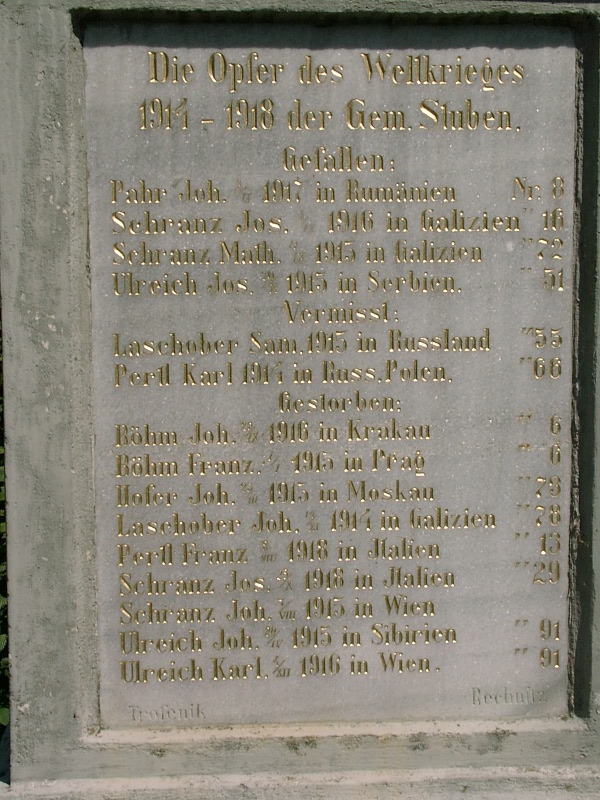 Die Opfer des Weltkrieges
1914 – 1918 der Gem. Stuben.
Gefallen:
Pahr Joh. 1917 in Rumänien Nr. 8
Schranz Jos. 1916 in Galizien " 16
Schranz Math. 1915 in Galizien " 72
Ulreich Jos. 1915 in Serbien. " 51
Vermisst:
Laschober Sam. 1915 in Russland " 55
Pertl Karl 1914 in Russ. Polen. " 66
Gestorben:
Böhm Joh. 1916 in Krakau " 6
Böhm Franz. 1915 in Prag " 6
Hofer Joh. 1915 in Moskau " 73
Laschober Joh. 1914 in Galizien " 78
Pertl Franz 1918 in Jtalien " 13
Schranz Jos. 1918 in Jtalien " 29
Schranz Joh. 1915 in Wien
Ulreich Joh. 1915 in Sibirien " 91
Ulreich Karl. 1916 in Wien. " 91
Trofenik Rechnitz